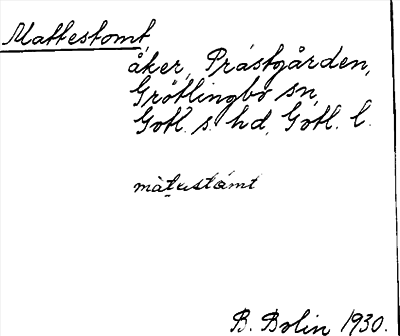 Mattestomt,
åker, Prästgården,
Grötlingbo sn,
Gotl. s. hd, Gotl. l.
màtustámt
B. Bolin 1930.